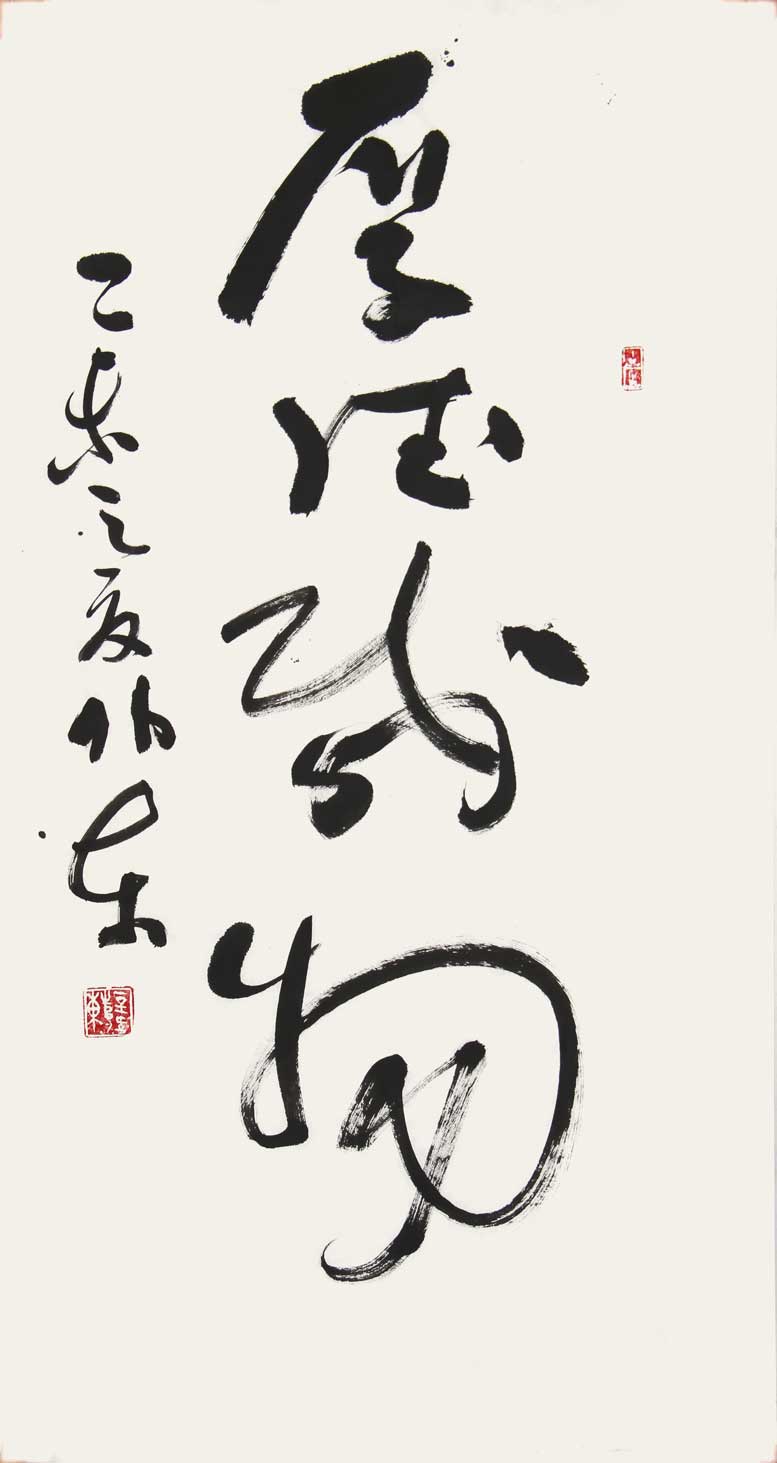 厚德载物
乙未之夏